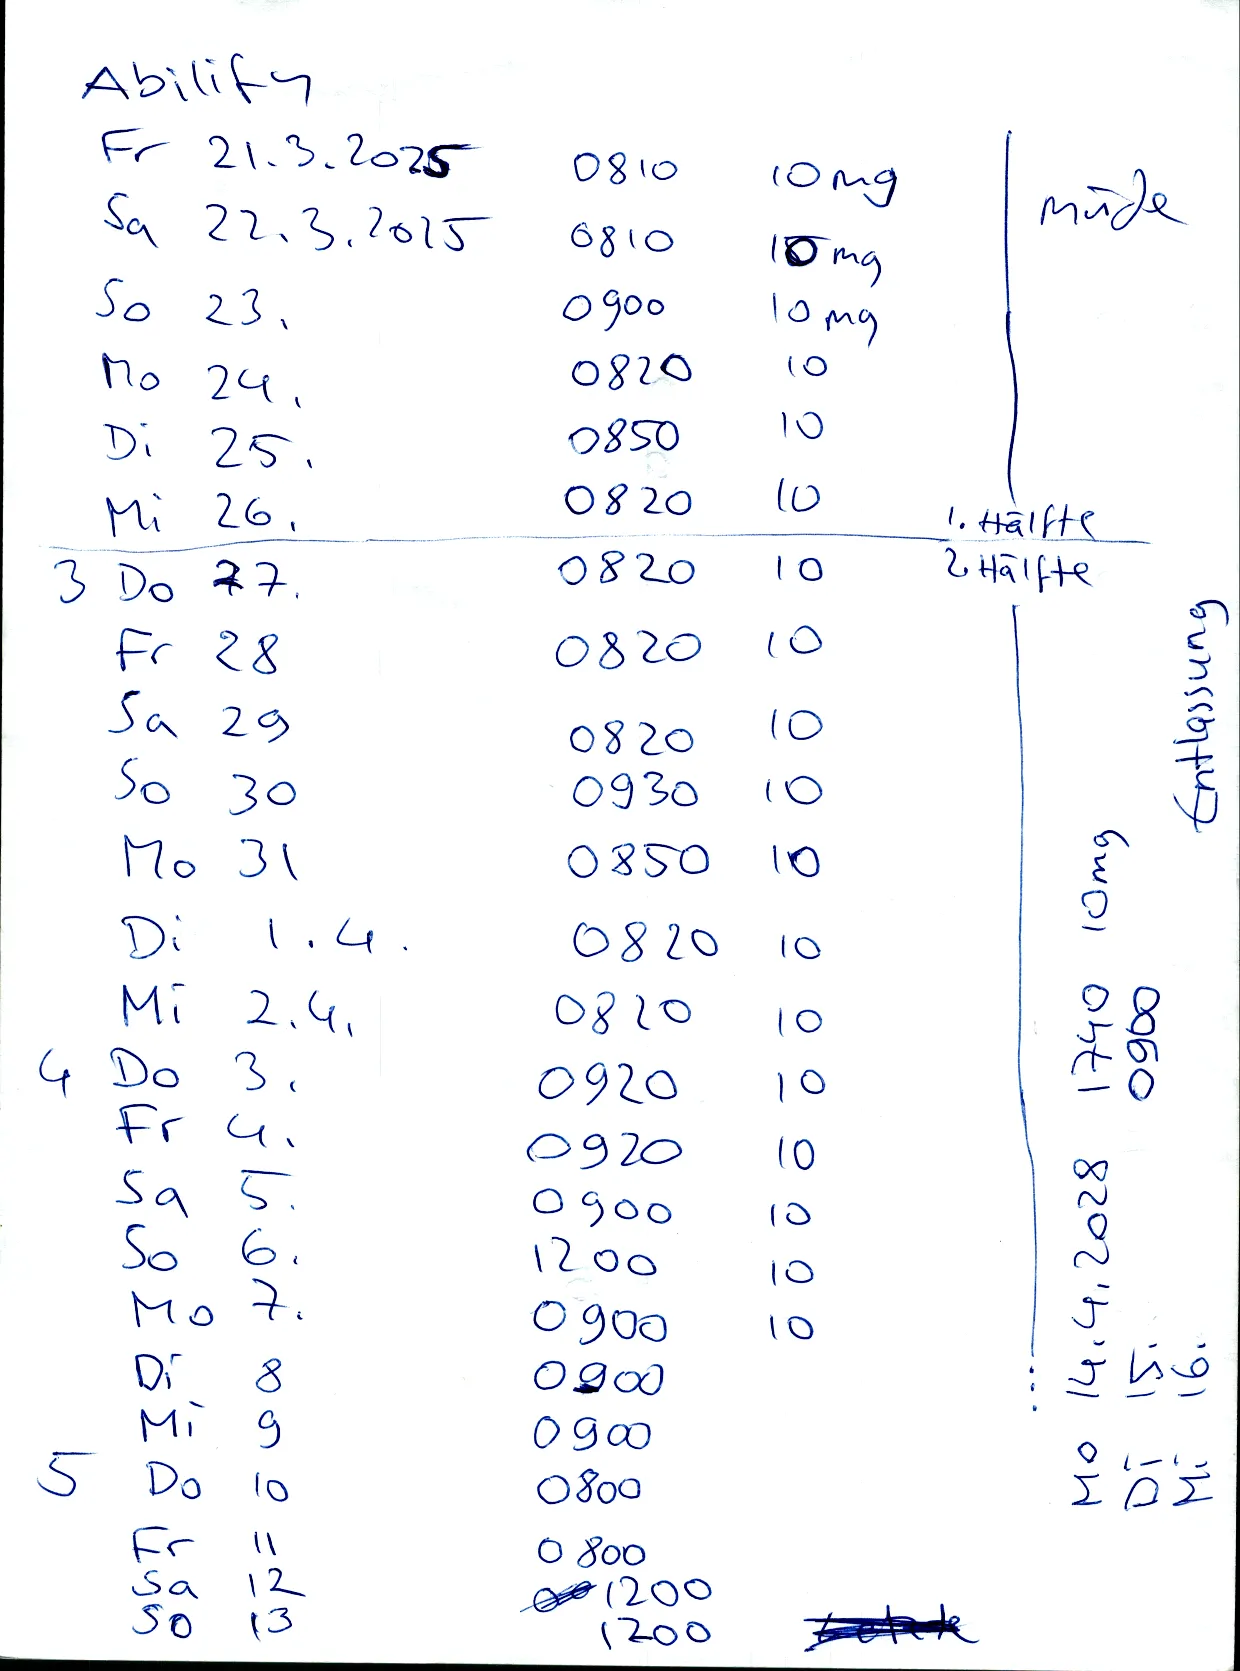 Abilify
Fr 21.3.2025 0810 10 mg
müde
Sa 22.3.2025 0810 10 mg
So 23. 0900 10 mg
Mo 24. 0820 10
Di 25. 0850 10
Mi 26. 0820 10
1. Hälfte
2. Hälfte
3 Do 27. 0820 10
Fr 28 0820 10
Sa 29 0820 10
So 30 0930 10
Mo 31 0850 10
Di 1.4. 0820 10
Mi 2.4. 0820 10
4 Do 3. 0920 10
Fr 4. 0920 10
Sa 5. 0900 10
So 6. 1200 10
Mo 7. 0900 10
Di 8 0900
Mi 9 0900
5 Do 10 0800
Fr 11 0800
Sa 12 1200
So 13 1200
Mo 14.4.2028 1740 10mg
Di 15. 0900
Mi 16. Entlassung